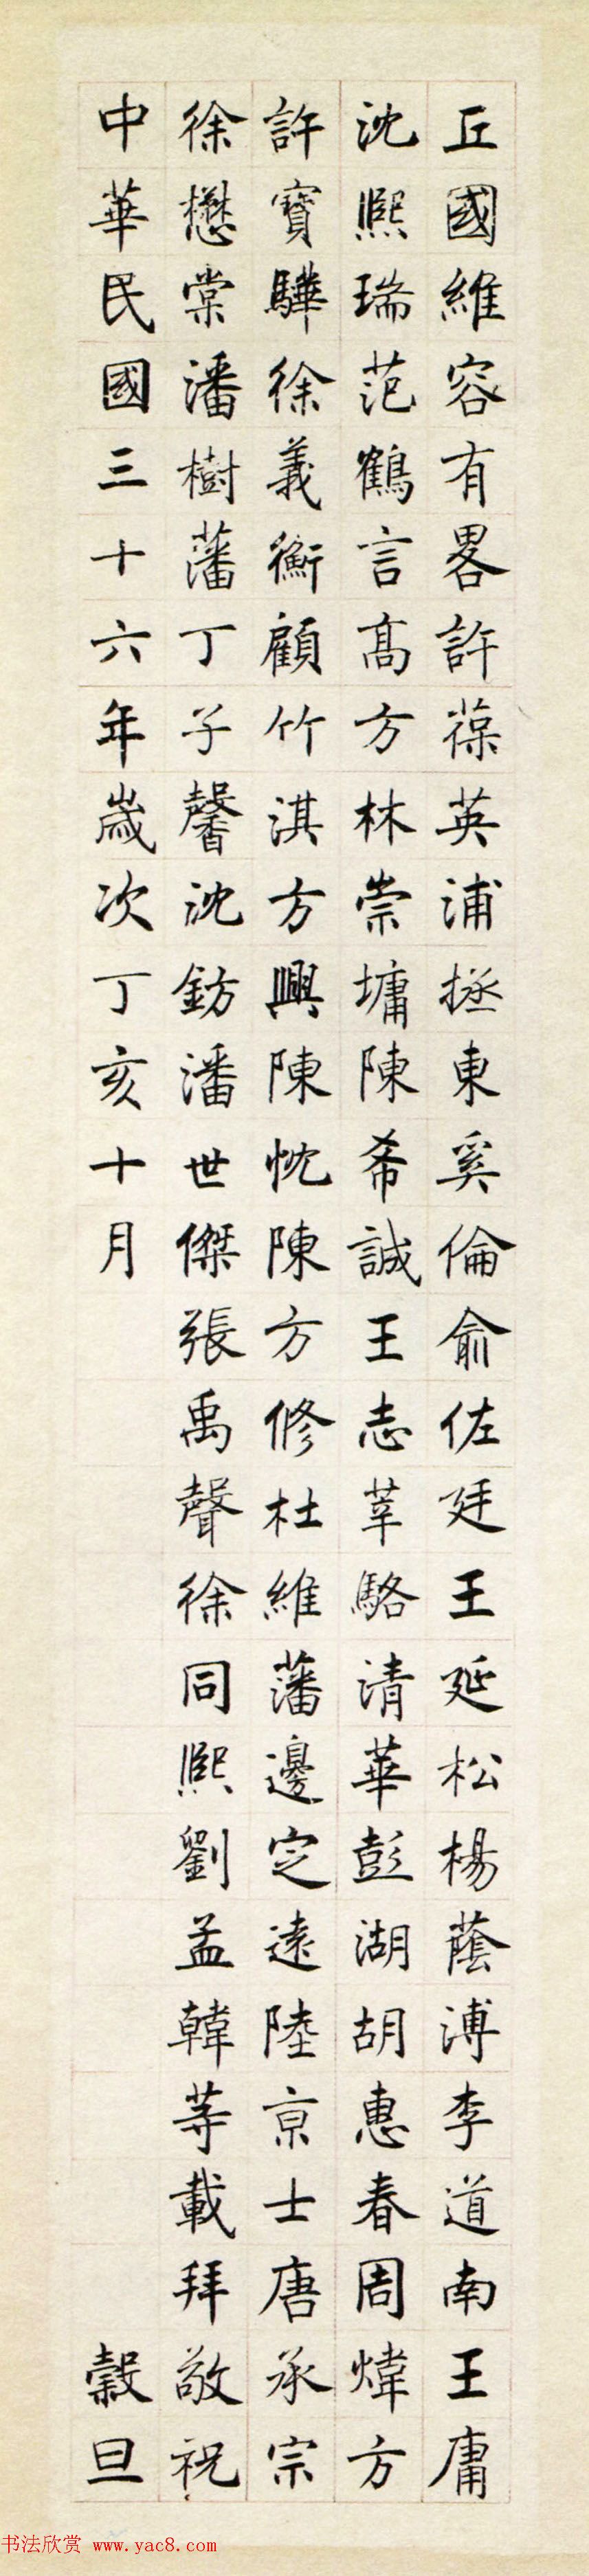 丘國維容有畧許葆英浦拯東奚倫俞佐廷王延松楊蔭溥李道南王庸
沈熙瑞范鶴言高方林崇墉陳希誠王志莘駱清華彭湖胡惠春周煒方
許寶驊徐義衡顧竹淇方興陳忱陳方修杜維藩邊定遠陸京士唐承宗
徐懋棠潘樹藩丁子馨沈鈁潘世傑張禹聲徐同熙劉孟韓等載拜敬祝
中華民國三十六年歲次丁亥十月 穀旦
书法欣赏 www.yac8.com